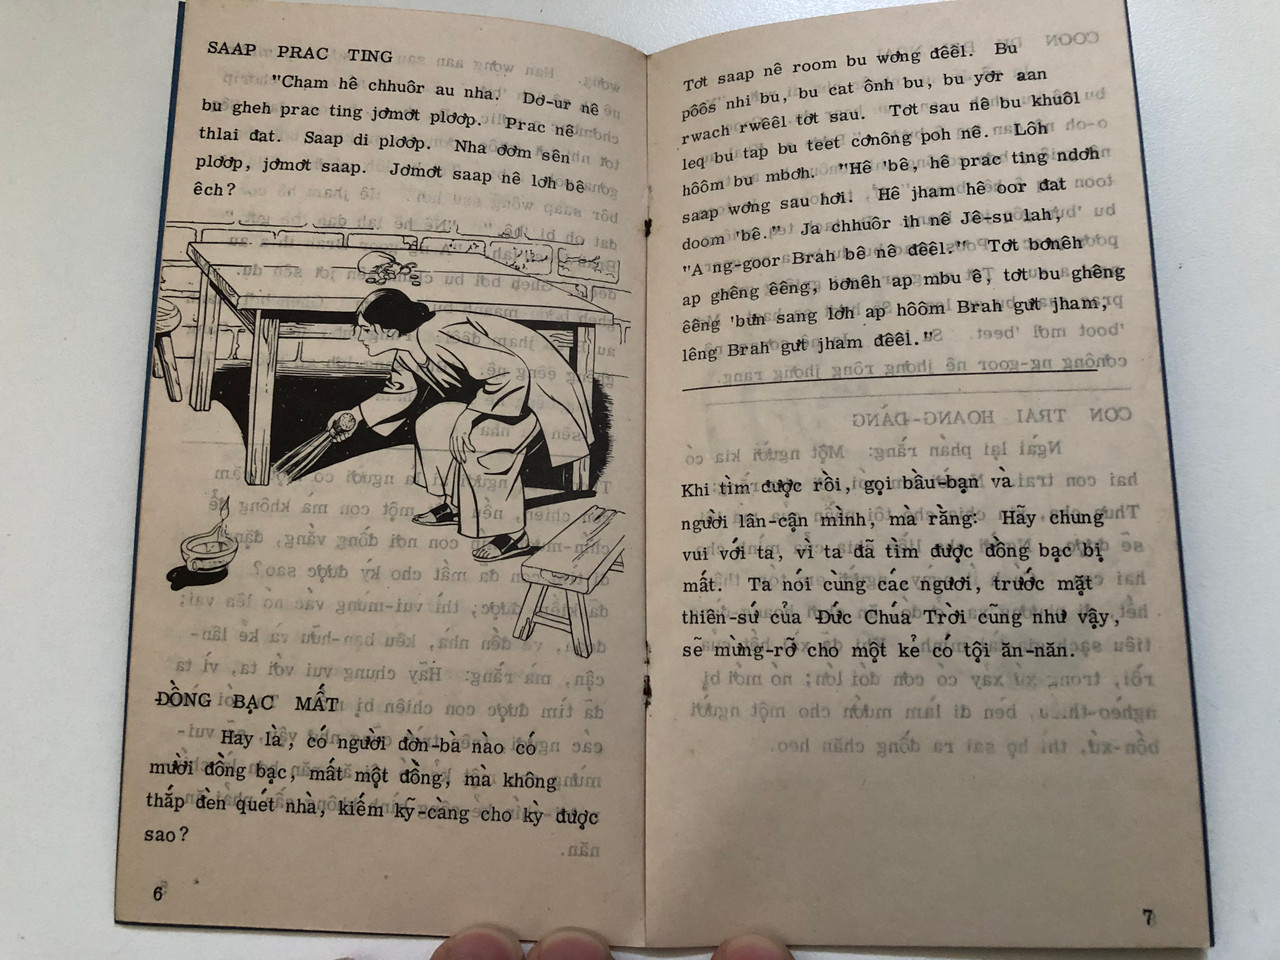 SAAP PRAC TING
"Chạm hê chhuôr au nha. Dơ-ur nê
bu gheh prac ting jơmơt plơơp. Prac nê
thlai đat. Saap di plơơp. Nha đơm sên
plơơp, jơmơt saap. Jơmơt saap nê lơh bê
êch?
ĐỒNG BẠC MẤT
Hay là, có người đờn-bà nào có
mười đồng bạc, mất một đồng, mà không
thắp đèn quét nhà, kiếm kỹ-càng cho kỳ được
sao?
6
Tơt saap nê room bu wơng đêêl. Bu
pôôs nhi bu, bu cat ônh bu, bu yơr aan
rwach rwêêl tơt sau. Tơt sau nê bu khuôl
leq bu tap bu teet cơnông poh nê. Lôh
hôôm bu mbơh. "Hê 'bê, hê prac ting ndơh
saap wơng sau hơi. Hê jham hê oor đat
doom 'bê." Ja chhuôr ih nê Jê-su lah,
"A ng-goor Brah bê nê đêêl." Tơt bơnêh
ap ghêng êêng, bơnêh ap mbu ê, tơt bu ghêng
êêng 'bưn sang lơh ap hôôm Brah gưt jham,
lêng Brah gưt jham đêêl."
Khi tìm được rồi, gọi bầu-bạn và
người lân-cận mình, mà rằng: Hãy chung
vui với ta, vì ta đã tìm được đồng bạc bị
mất. Ta nói cùng các ngươi, trước mặt
thiên-sứ của Đức Chúa Trời cũng như vậy,
sẽ mừng-rỡ cho một kẻ có tội ăn-năn.
7